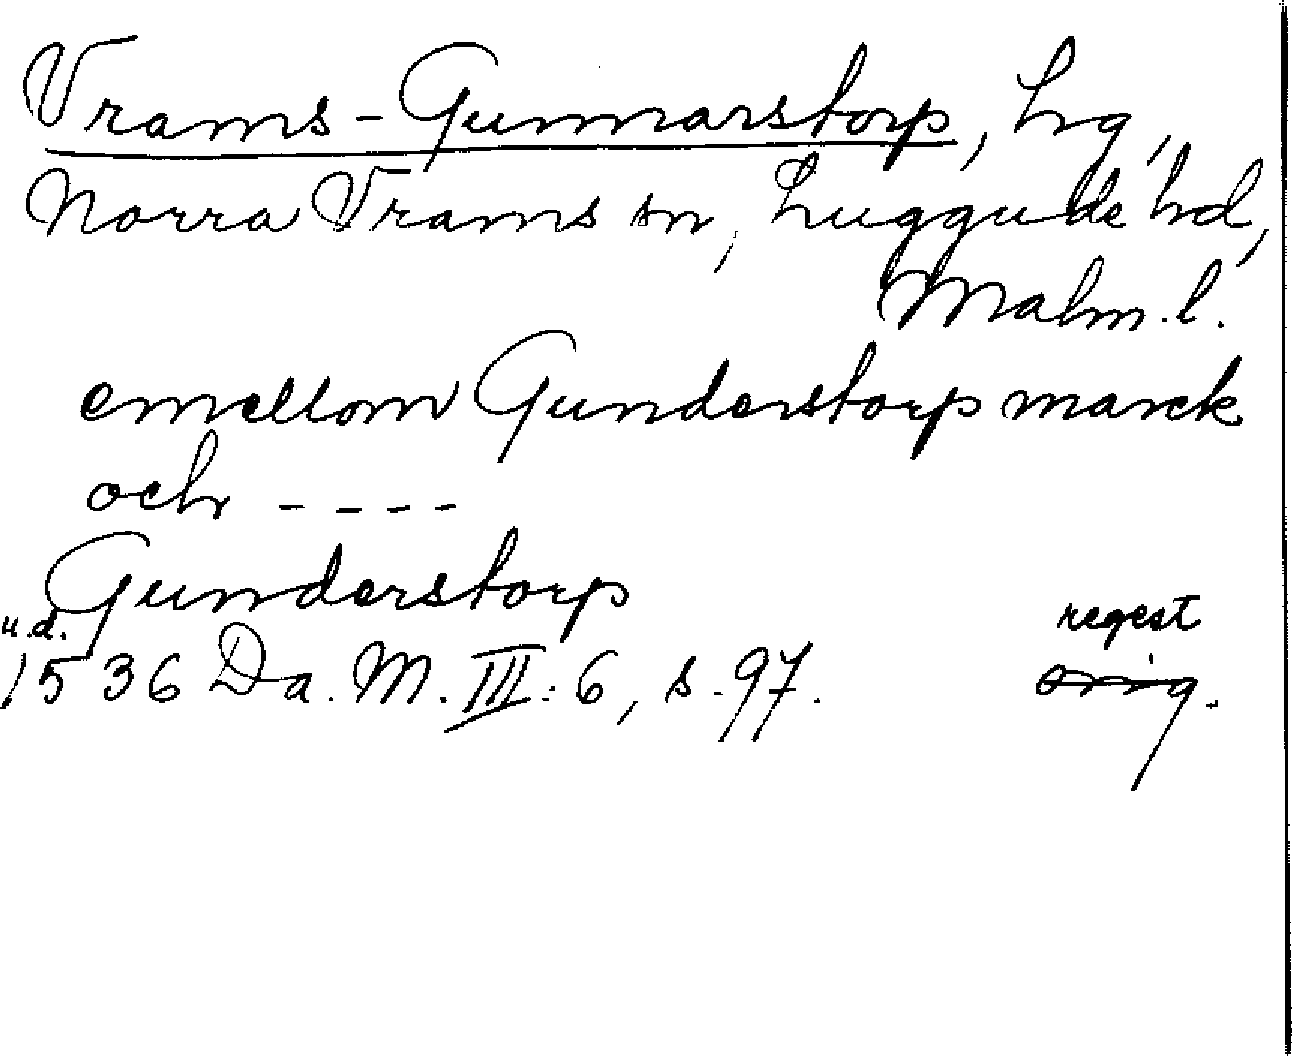 Vrams-Gunnarstorp, hg,
Norra Vrams sn, Luggude hd,
Malm. l.
emellom Gunderstorp marck
och ----
Gunderstorp
u.d.
1536 Da. M. III: 6, s. 97.
regest
orig.